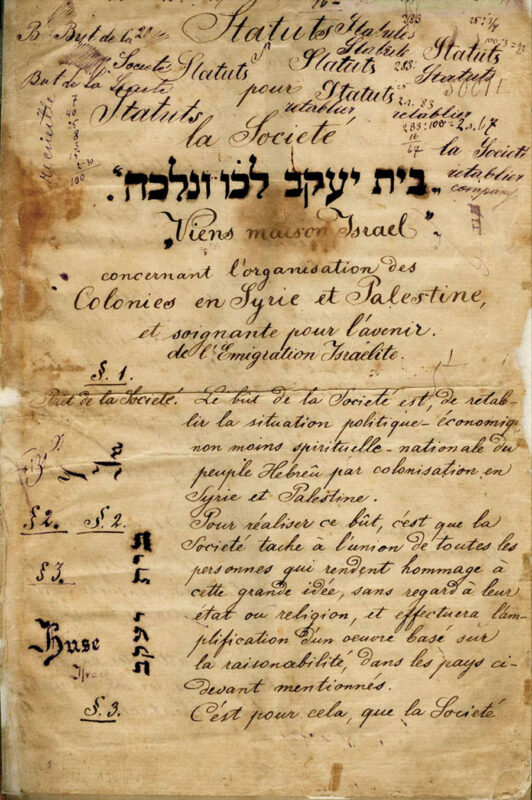 B But de la
Statuts
Statuts
Statuts
Statuts
Société
Statuts
Statuts
Statuts
But de la Societé
pour
Statuts
Statuts
retablier
retablier
la Societé
la Societé
retablier
"בית יעקב לכו ונלכה".
„Viens maison Israel"
concernant l'organisation des
Colonies en Syrie et Palestine,
et soignante pour l'avenir.
de l'Emigration Israélite.
§. 1.
But de la Societé. Le bût de la Societé est, de retab-
lir la situation politique-économiq
non moins spirituelle-nationale du
peuple Hébreû par colonisation en
Syrie et Palestine.
§2. §. 2. Pour réaliser ce bût, c'est que la
Societé tache à l'union de toutes les
§3. personnes qui rendent hommage à
cette grande idée, sans regard à leur
état ou religion, et effectuera l'am-
plification d'un oeuvre basé sur
la raisonabilité, dans les pays ci-
devant mentionnés.
בית יעקב
Huse
§. 3. C'est pour cela, que la Societé